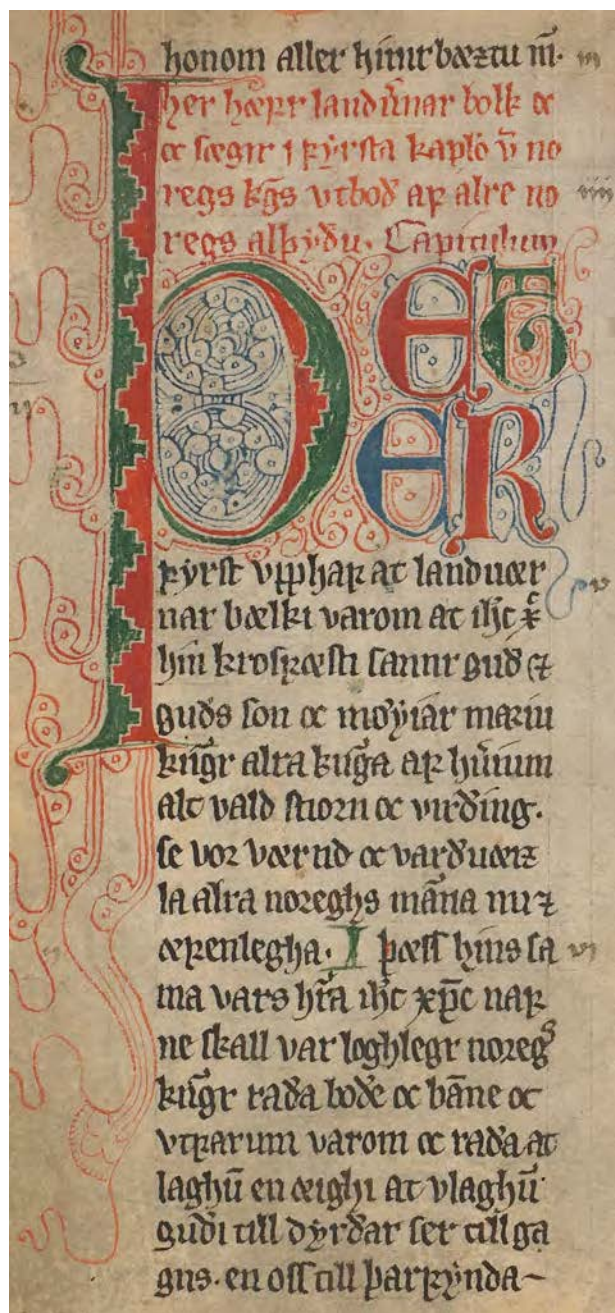 honom aller hinir bæztu m̄.
her hæfr landv̄nar bolk oc
oc sægir i fyrsta kaplo v̄ no
regs kgs vtboð af alre no
regs alþyðu. Capitulum
ÞET
ER
fyrst vpphaf at landuær
nar bælki varom at ihc x̄
hin krosfæsti sannr guð ⁊
guðs son oc møyiar mariu
kungr alra kunga af huerium
alt vald stiorn oc virðing.
se vor værnd oc varðuæiz
la alra noreghs manna nu ⁊
æfenlegha. I þæss hins sa
ma vars h̄ra ihc xp̄c naf
ne skall var loghlegr noregs
kungr raða boðe oc bāne oc
vtfarum varom oc raða at
laghū en æighi at vlaghū
guði till dyrðar ser till ga
gns. en oss till þarfynda~